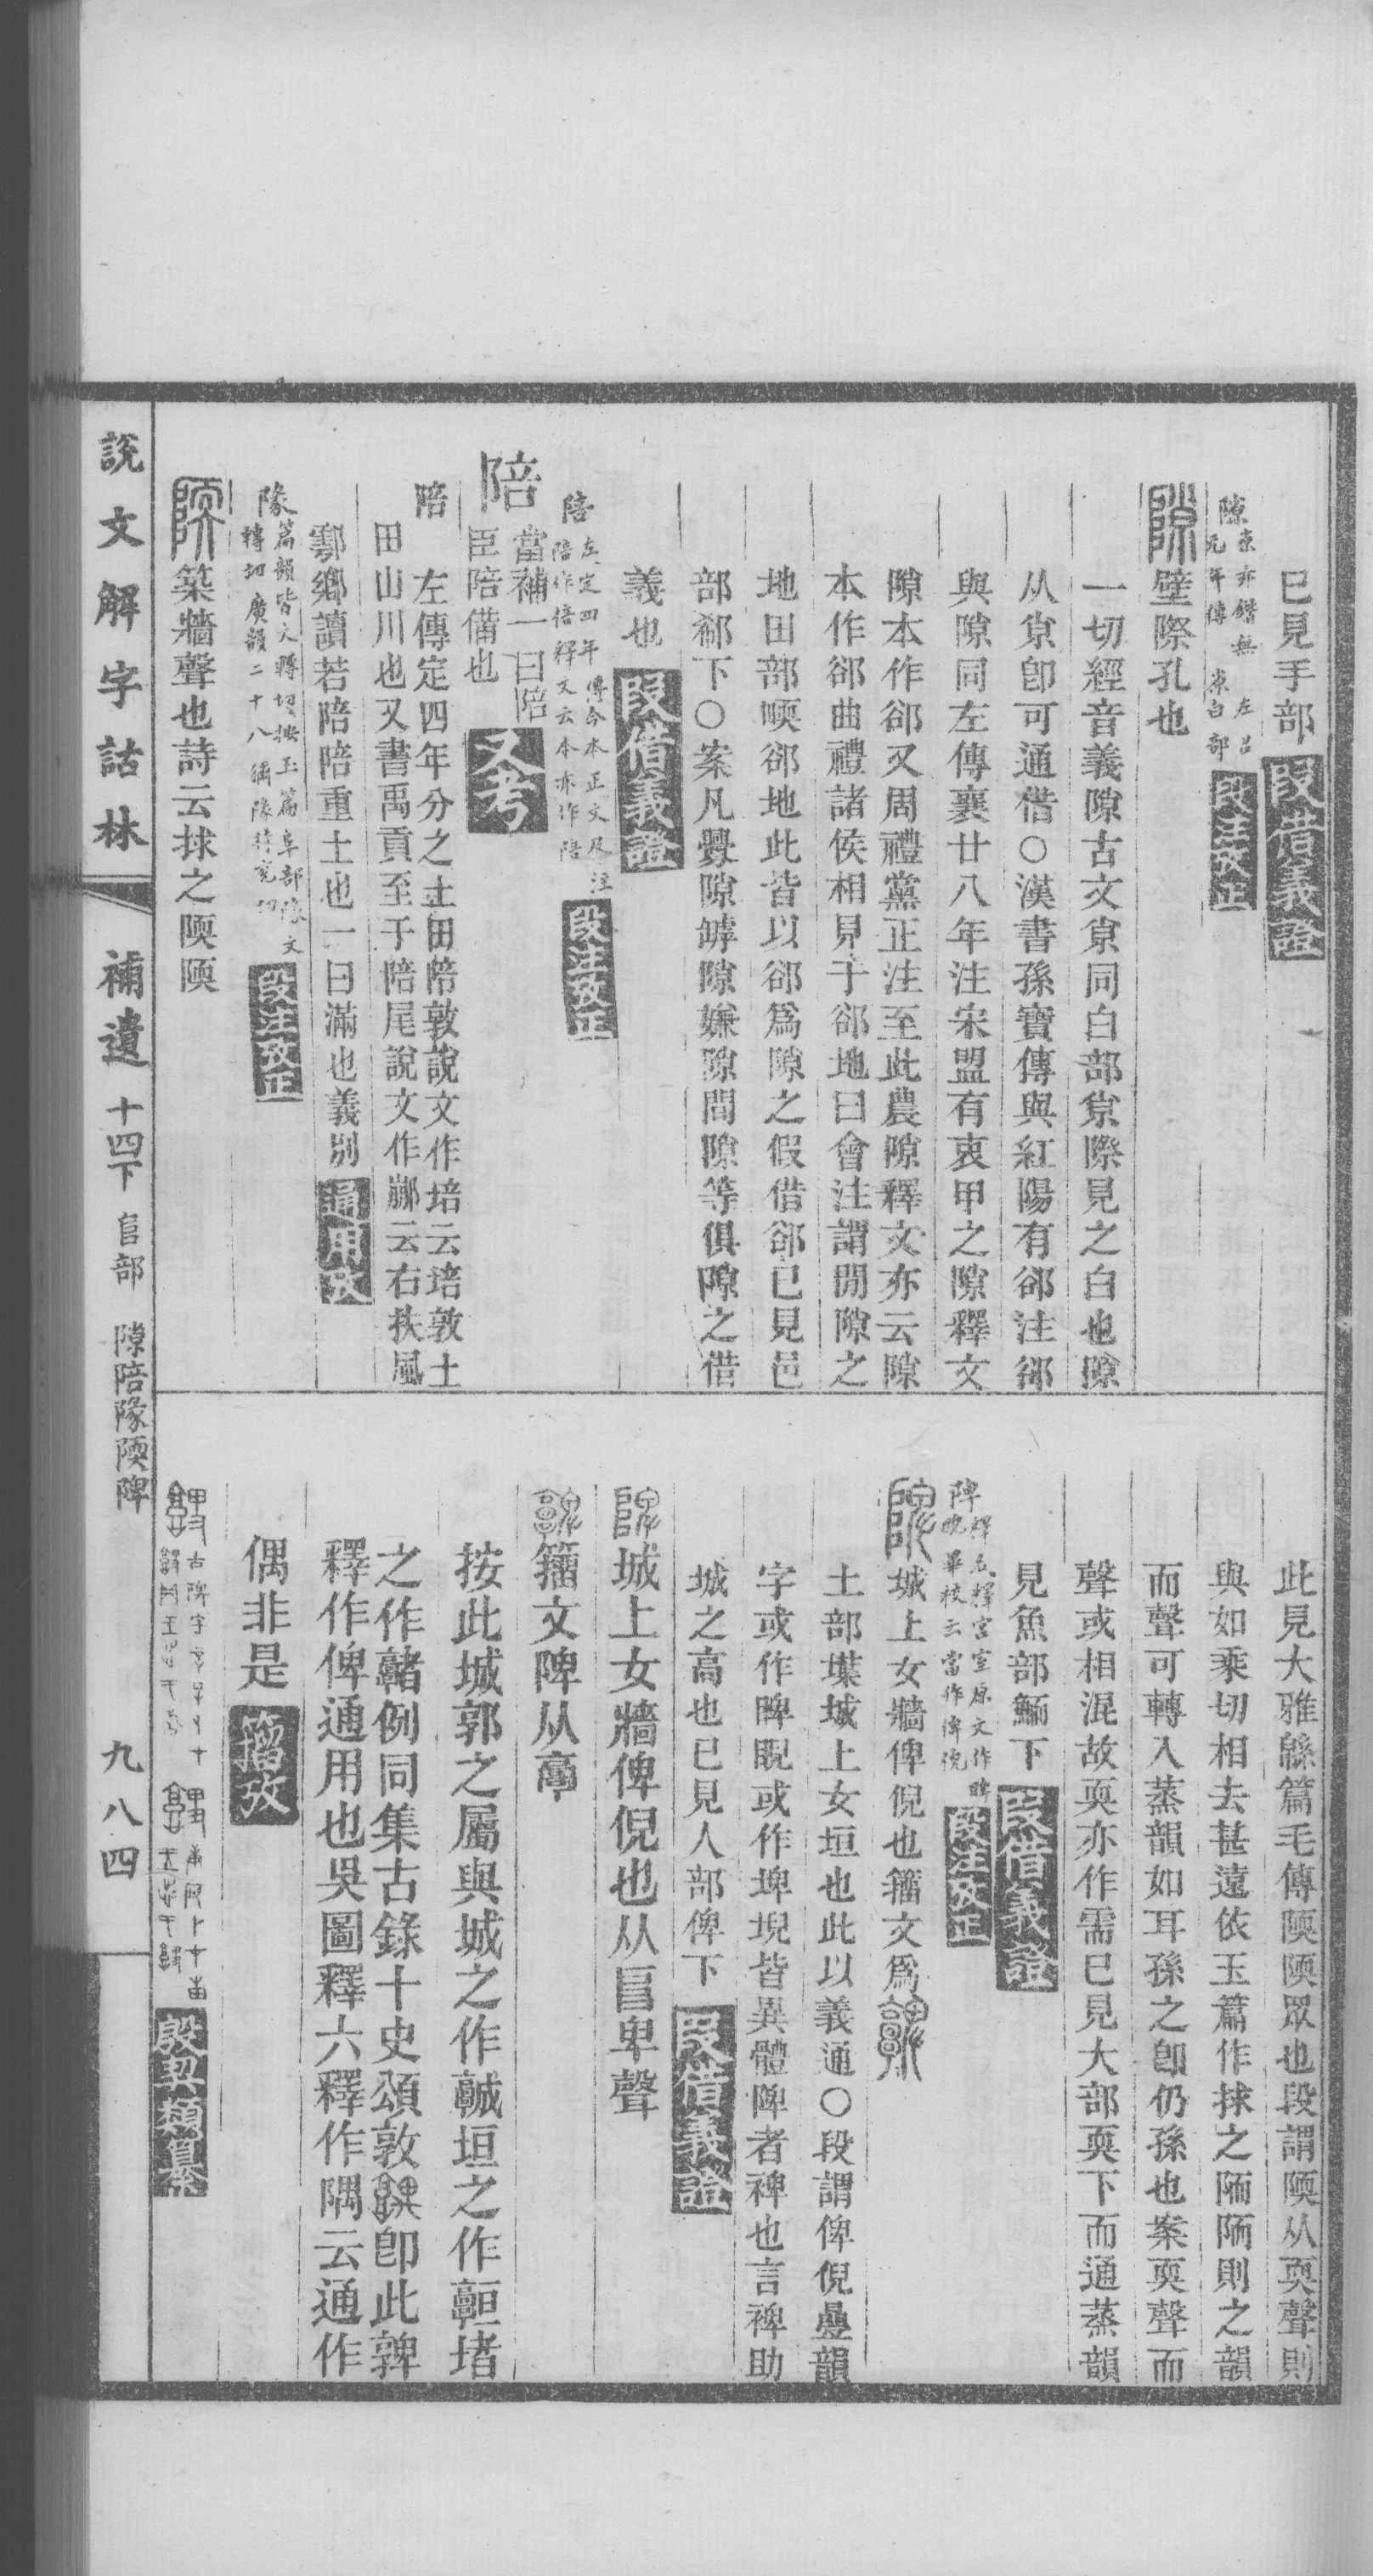 已見手部 段借義證
隙 東亦鍇無 左昌
元年傳 東白部 段注攷正
隙 壁際孔也
一切經音義隙古文𡭴同白部𡭴際見之白也隙
从𡭴卽可通借○漢書孫寶傳與紅陽有郤注郤
與隙同左傳襄廿八年注宋盟有衷甲之隙釋文
隙本作郤又周禮黨正注至此農隙釋文亦云隙
本作郤曲禮諸侯相見于郤地曰會注謂閒隙之
地田部㬉郤地此皆以郤爲隙之假借郤已見邑
部郗下○案凡釁隙罅隙嫌隙間隙等俱隙之借
義也 段借義證
陪 左定四年傳今本正文及注
陪作倍釋文云本亦作陪 段注攷正
陪 當補一曰陪
臣陪備也 又考
陪 左傳定四年分之土田陪敦說文作培云培敦土
田山川也又書禹貢至于陪尾說文作䣙云右扶風
鄠鄉讀若陪陪重土也一曰滿也義別 通用攷
隊 篇韻皆文轉切按玉篇阜部隊文
轉切廣韻二十八獮隊持兗切 段注攷正
陾 築牆聲也詩云捄之陾陾
此見大雅緜篇毛傳陾陾眾也段謂陾从耎聲則
與如乘切相去甚遠依玉篇作捄之陑陑則之韻
而聲可轉入蒸韻如耳孫之卽仍孫也案耎聲而
聲或相混故耎亦作需已見大部耎下而通蒸韻
見魚部鮞下 段借義證
陴 釋名釋宮室原文作睥
睨畢校云當作俾倪 段注攷正
陴 城上女牆俾倪也籒文爲𩫫
土部堞城上女垣也此以義通○段謂俾倪疊韻
字或作睥睨或作埤堄皆異體陴者裨也言裨助
城之高也已見人部俾下 段借義證
陴 城上女牆俾倪也从𨸏卑聲
𩫫 籒文陴从𩫖
按此城郭之屬與城之作𩫨垣之作𩫧堵
之作𩫳例同集古錄十史頌敦𩫫卽此𩫫
釋作俾通用也吳圖釋六釋作隅云通作
偶非是 籒攷
殷契類纂
說文解字詁林 補遺 十四下 𨸏部 隙陪隊陾陴 九八四